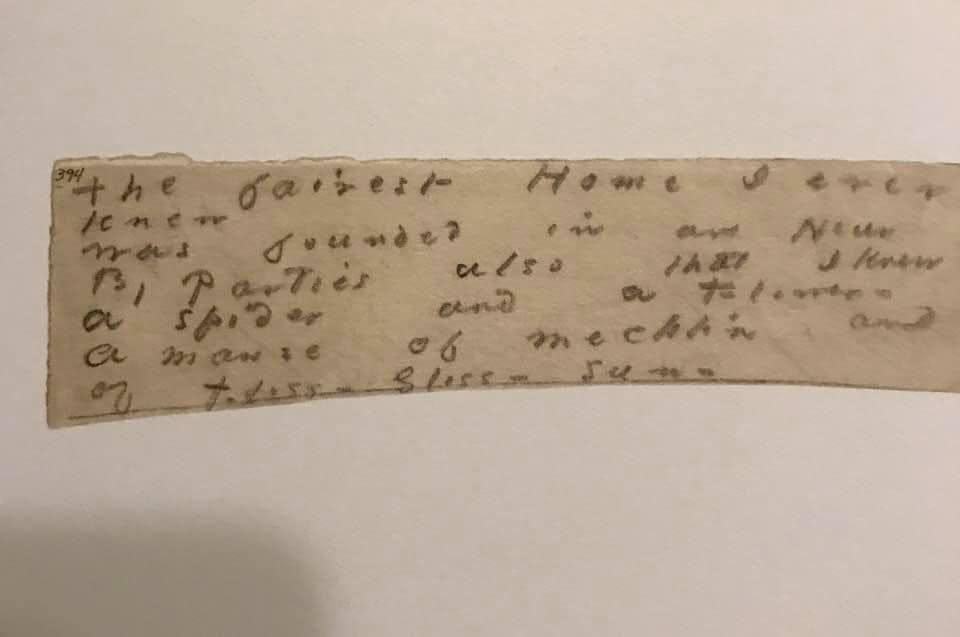 394
the fairest Home I ever
knew
was founded in an Hour
By Parties also that I knew
a spider and a Flower –
a manse of mechlin and
of Floss – Gloss – Sun –